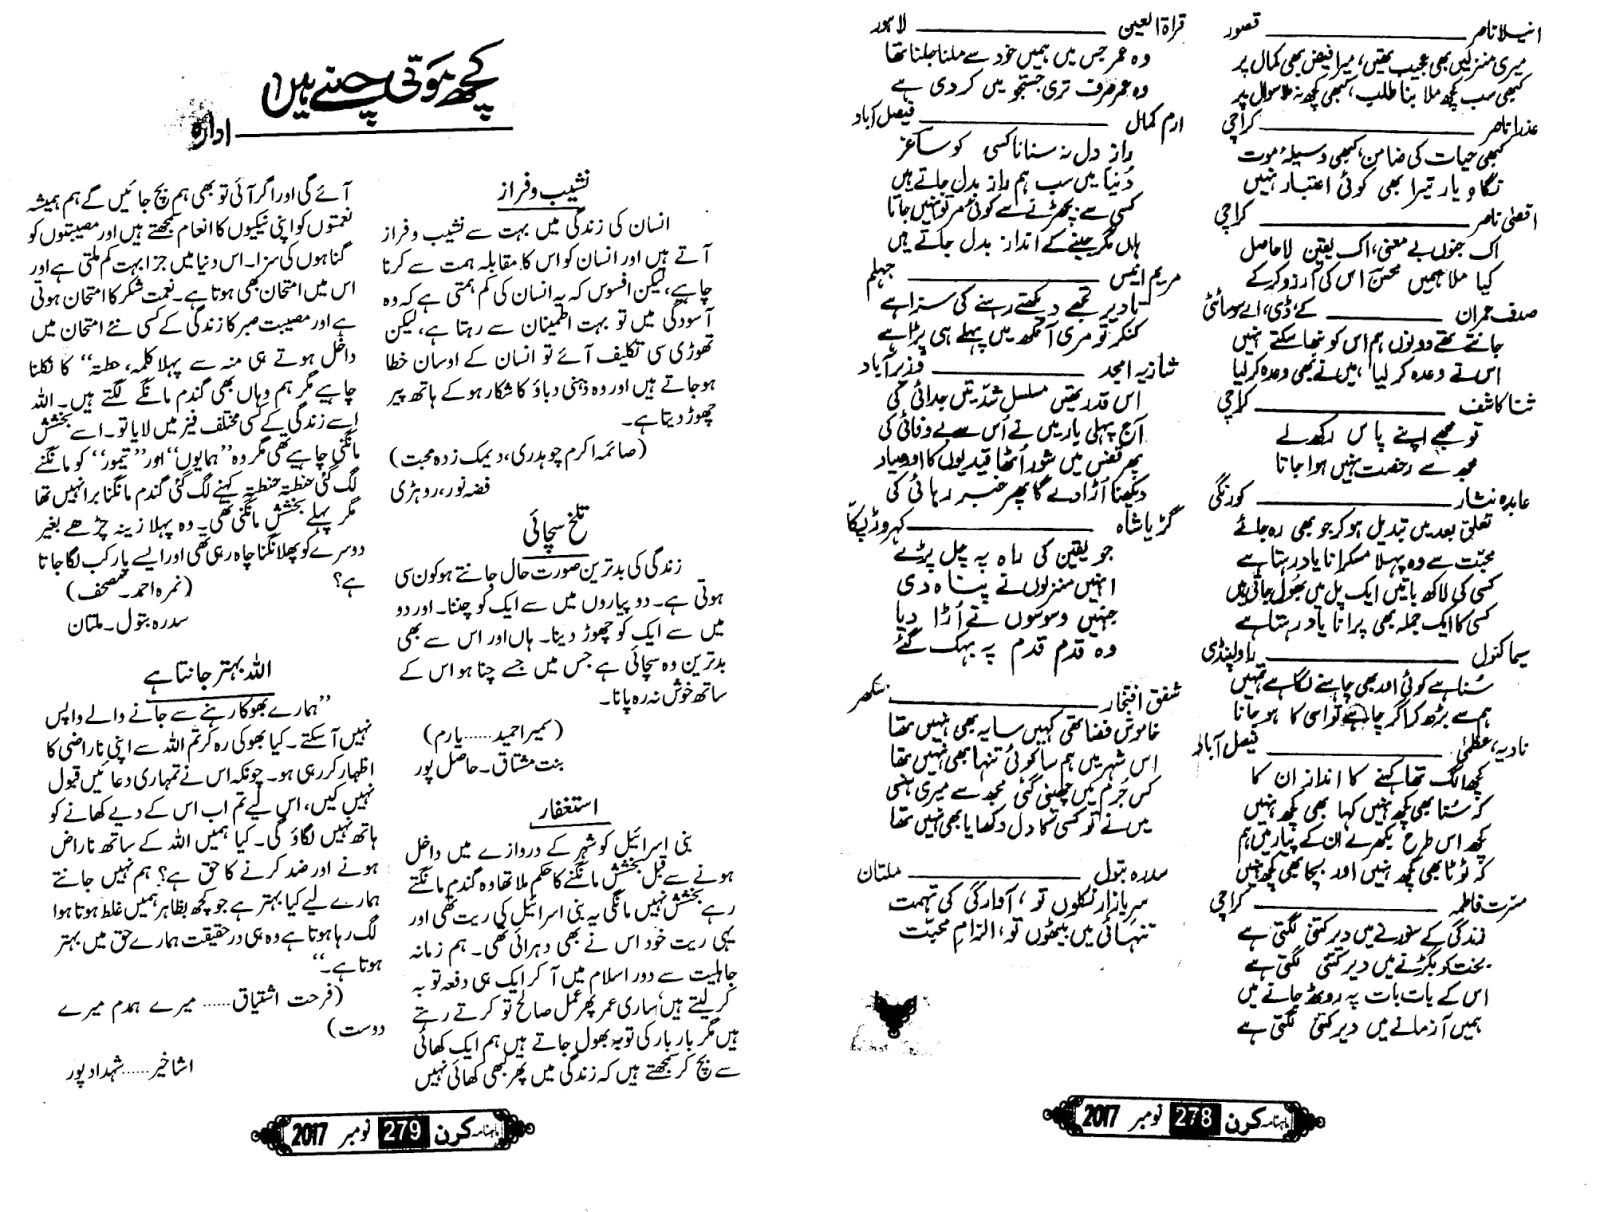 انیلا ناصر ــــــــــ قصور
میری منزلیں بھی عجیب تھیں، میرا فیض بھی کمال پر
کبھی سب کچھ ملا بنا طلب، کبھی کچھ نہ ملا سوال پر
عذرا ناصر ــــــــــ کراچی
کبھی حیات کی ضامن، کبھی وسیلۂ موت
نگاہ یار تیرا بھی کوئی اعتبار نہیں
اقصیٰ ناصر ــــــــــ کراچی
اک جنوں بے معنی، اک یقین لا حاصل
کیا ملا ہمیں محسن اس کی آرزو کر کے
صدف عمران ــــــــــ کے ڈی، اے سوسائٹی
جانتے تھے دونوں ہم اس کو نبھا سکتے نہیں
اس نے وعدہ کر لیا، میں نے بھی وعدہ کر لیا
ثنا کاشف ــــــــــ کراچی
تو مجھے اپنے پاس رکھ لے
مجھ سے رخصت نہیں ہوا جاتا
عابدہ نثار ــــــــــ کورنگی
تعلق بعد میں تبدیل ہو کر جو بھی رہ جائے
محبت سے وہ پہلا مسکرانا یاد رہتا ہے
کسی کی لاکھ باتیں ایک پل میں بھول جاتی ہیں
کسی کا ایک جملہ بھی پرانا یاد رہتا ہے
سیما کنول ــــــــــ راولپنڈی
سنا ہے کوئی اور بھی چاہنے لگا ہے تمہیں
ہم سے بڑھ کر اگر چاہے تو اسی کا ہو جانا
نادیہ، عظمیٰ ــــــــــ فیصل آباد
کچھ الگ تھا کہنے کا انداز ان کا
کہ سنا بھی کچھ نہیں کہا بھی کچھ نہیں
کچھ اس طرح بکھرے ان کے پیار میں ہم
کہ ٹوٹا بھی کچھ نہیں اور بچا بھی کچھ نہیں
مسرت فاطمہ ــــــــــ کراچی
زندگی کے سنورنے میں دیر کتنی لگتی ہے
بخت کو بگڑنے میں دیر کتنی لگتی ہے
اس کے بات بات پہ روٹھ جانے میں
ہمیں آزمانے میں دیر کتنی لگتی ہے
قراۃ العین ــــــــــ لاہور
وہ عمر جس میں ہمیں خود سے ملنا جلنا تھا
وہ عمر صرف تری جستجو میں کر دی ہے
ارم کمال ــــــــــ فیصل آباد
راز دل نہ سنانا کسی کو ساغر
دنیا میں سب ہم راز بدل جاتے ہیں
کسی سے بچھڑنے سے کوئی مر تو نہیں جاتا
ہاں مگر جینے کے انداز بدل جاتے ہیں
مریم انیس ــــــــــ جہلم
تا دیر تجھے دیکھتے رہنے کی سزا ہے
کنکر تو مری آنکھ میں پہلے ہی پڑا ہے
شازیہ امجد ــــــــــ وزیر آباد
اس قدر تھیں مسلسل شدتیں جدائی کی
آج پہلی بار میں نے اس سے بے وفائی کی
پھر قفس میں شور اٹھا قیدیوں کا اور صیاد
دیکھنا اڑا دے گا پھر خبر رہائی کی
گڑیا شاہ ــــــــــ کہروڑ پکا
جو یقین کی راہ پہ چل پڑے
انہیں منزلوں نے پناہ دی
جنہیں وسوسوں نے اڑا دیا
وہ قدم قدم پہ بہک گئے
شفق افتخار ــــــــــ سکھر
خاموش فضا تھی کہیں سایہ بھی نہیں تھا
اس شہر میں ہم سا کوئی تنہا بھی نہیں تھا
کس جرم میں چھینی گئی مجھ سے میری ہنسی
میں نے تو کسی کا دل دکھایا بھی نہیں تھا
سدرہ بتول ــــــــــ ملتان
سر بازار نکلوں تو، آوارگی کی تہمت
تنہائی میں بیٹھوں تو، الزام محبت
ماہنامہ کرن 278 نومبر 2017
کچھ موتی چنے ہیں
ادارہ
نشیب و فراز
انسان کی زندگی میں بہت سے نشیب و فراز
آتے ہیں اور انسان کو اس کا مقابلہ ہمت سے کرنا
چاہیے، لیکن افسوس کہ یہ انسان کی کم ہمتی ہے کہ وہ
آسودگی میں تو بہت اطمینان سے رہتا ہے، لیکن
تھوڑی سی تکلیف آئے تو انسان کے اوسان خطا
ہو جاتے ہیں اور وہ ذہنی دباؤ کا شکار ہو کے ہاتھ پیر
چھوڑ دیتا ہے۔
(صائمہ اکرم چوہدری، دیمک زدہ محبت)
فضہ نور، روہڑی
تلخ سچائی
زندگی کی بدترین صورت حال جانتے ہو کون سی
ہوتی ہے۔ دو پیاروں میں سے ایک کو چننا۔ اور دو
میں سے ایک کو چھوڑ دینا۔ ہاں اور اس سے بھی
بدترین وہ سچائی ہے جس میں جسے چنا ہو اس کے
ساتھ خوش نہ رہ پانا۔
(سمیرا حمید......یارم)
بنت مشتاق۔ حاصل پور
استغفار
بنی اسرائیل کو شہر کے دروازے میں داخل
ہونے سے قبل بخشش مانگنے کا حکم ملا تھا وہ گندم مانگتے
رہے بخشش نہیں مانگی یہ بنی اسرائیل کی ریت تھی اور
یہی ریت خود اس نے بھی دہرائی تھی۔ ہم زمانہ
جاہلیت سے دور اسلام میں آ کر ایک ہی دفعہ توبہ
کر لیتے ہیں ساری عمر پھر عمل صالح تو کرتے رہتے
ہیں مگر بار بار کی توبہ بھول جاتے ہیں ہم ایک کھائی
سے بچ کر سمجھتے ہیں کہ زندگی میں پھر کبھی کھائی نہیں
آئے گی اور اگر آئی تو بھی ہم بچ جائیں گے ہم ہمیشہ
نعمتوں کو اپنی نیکیوں کا انعام سمجھتے ہیں اور مصیبتوں کو
گناہوں کی سزا۔ اس دنیا میں جزا بہت کم ملتی ہے اور
اس میں امتحان بھی ہوتا ہے۔ نعمت شکر کا امتحان ہوتی
ہے اور مصیبت صبر کا زندگی کے کسی نئے امتحان میں
داخل ہوتے ہی منہ سے پہلا کلمہ، حطتہ“ کا نکلنا
چاہیے مگر ہم وہاں بھی گندم مانگنے لگتے ہیں۔ اللہ
اسے زندگی کے کسی مختلف فیز میں لایا تو۔ اسے بخشش
مانگنی چاہیے تھی مگر وہ ”ہمایوں“ اور ”تیمور“ کو مانگنے
لگ گئی حنطتہ حنطتہ کہنے لگ گئی گندم مانگنا برا نہیں تھا
مگر پہلے بخشش مانگنی تھی۔ وہ پہلا زینہ چڑھے بغیر
دوسرے کو پھلانگنا چاہ رہی تھی اور ایسے پار کب لگا جاتا
ہے؟
(نمرہ احمد۔ مصحف)
سدرہ بتول۔ ملتان
اللہ بہتر جانتا ہے
”ہمارے بھوکا رہنے سے جانے والے واپس
نہیں آ سکتے۔ کیا بھوکی رہ کر تم اللہ سے اپنی ناراضی کا
اظہار کر رہی ہو۔ چونکہ اس نے تمہاری دعائیں قبول
نہیں کیں، اس لیے تم اب اس کے دیے کھانے کو
ہاتھ نہیں لگاؤ گی۔ کیا ہمیں اللہ کے ساتھ ناراض
ہونے اور ضد کرنے کا حق ہے؟ ہم نہیں جانتے
ہمارے لیے کیا بہتر ہے جو کچھ بظاہر ہمیں غلط ہوتا ہوا
لگ رہا ہوتا ہے وہ ہی در حقیقت ہمارے حق میں بہتر
ہوتا ہے۔“
(فرحت اشتیاق...... میرے ہمدم میرے
دوست)
اشا خیر......شہداد پور
ماہنامہ کرن 279 نومبر 2017